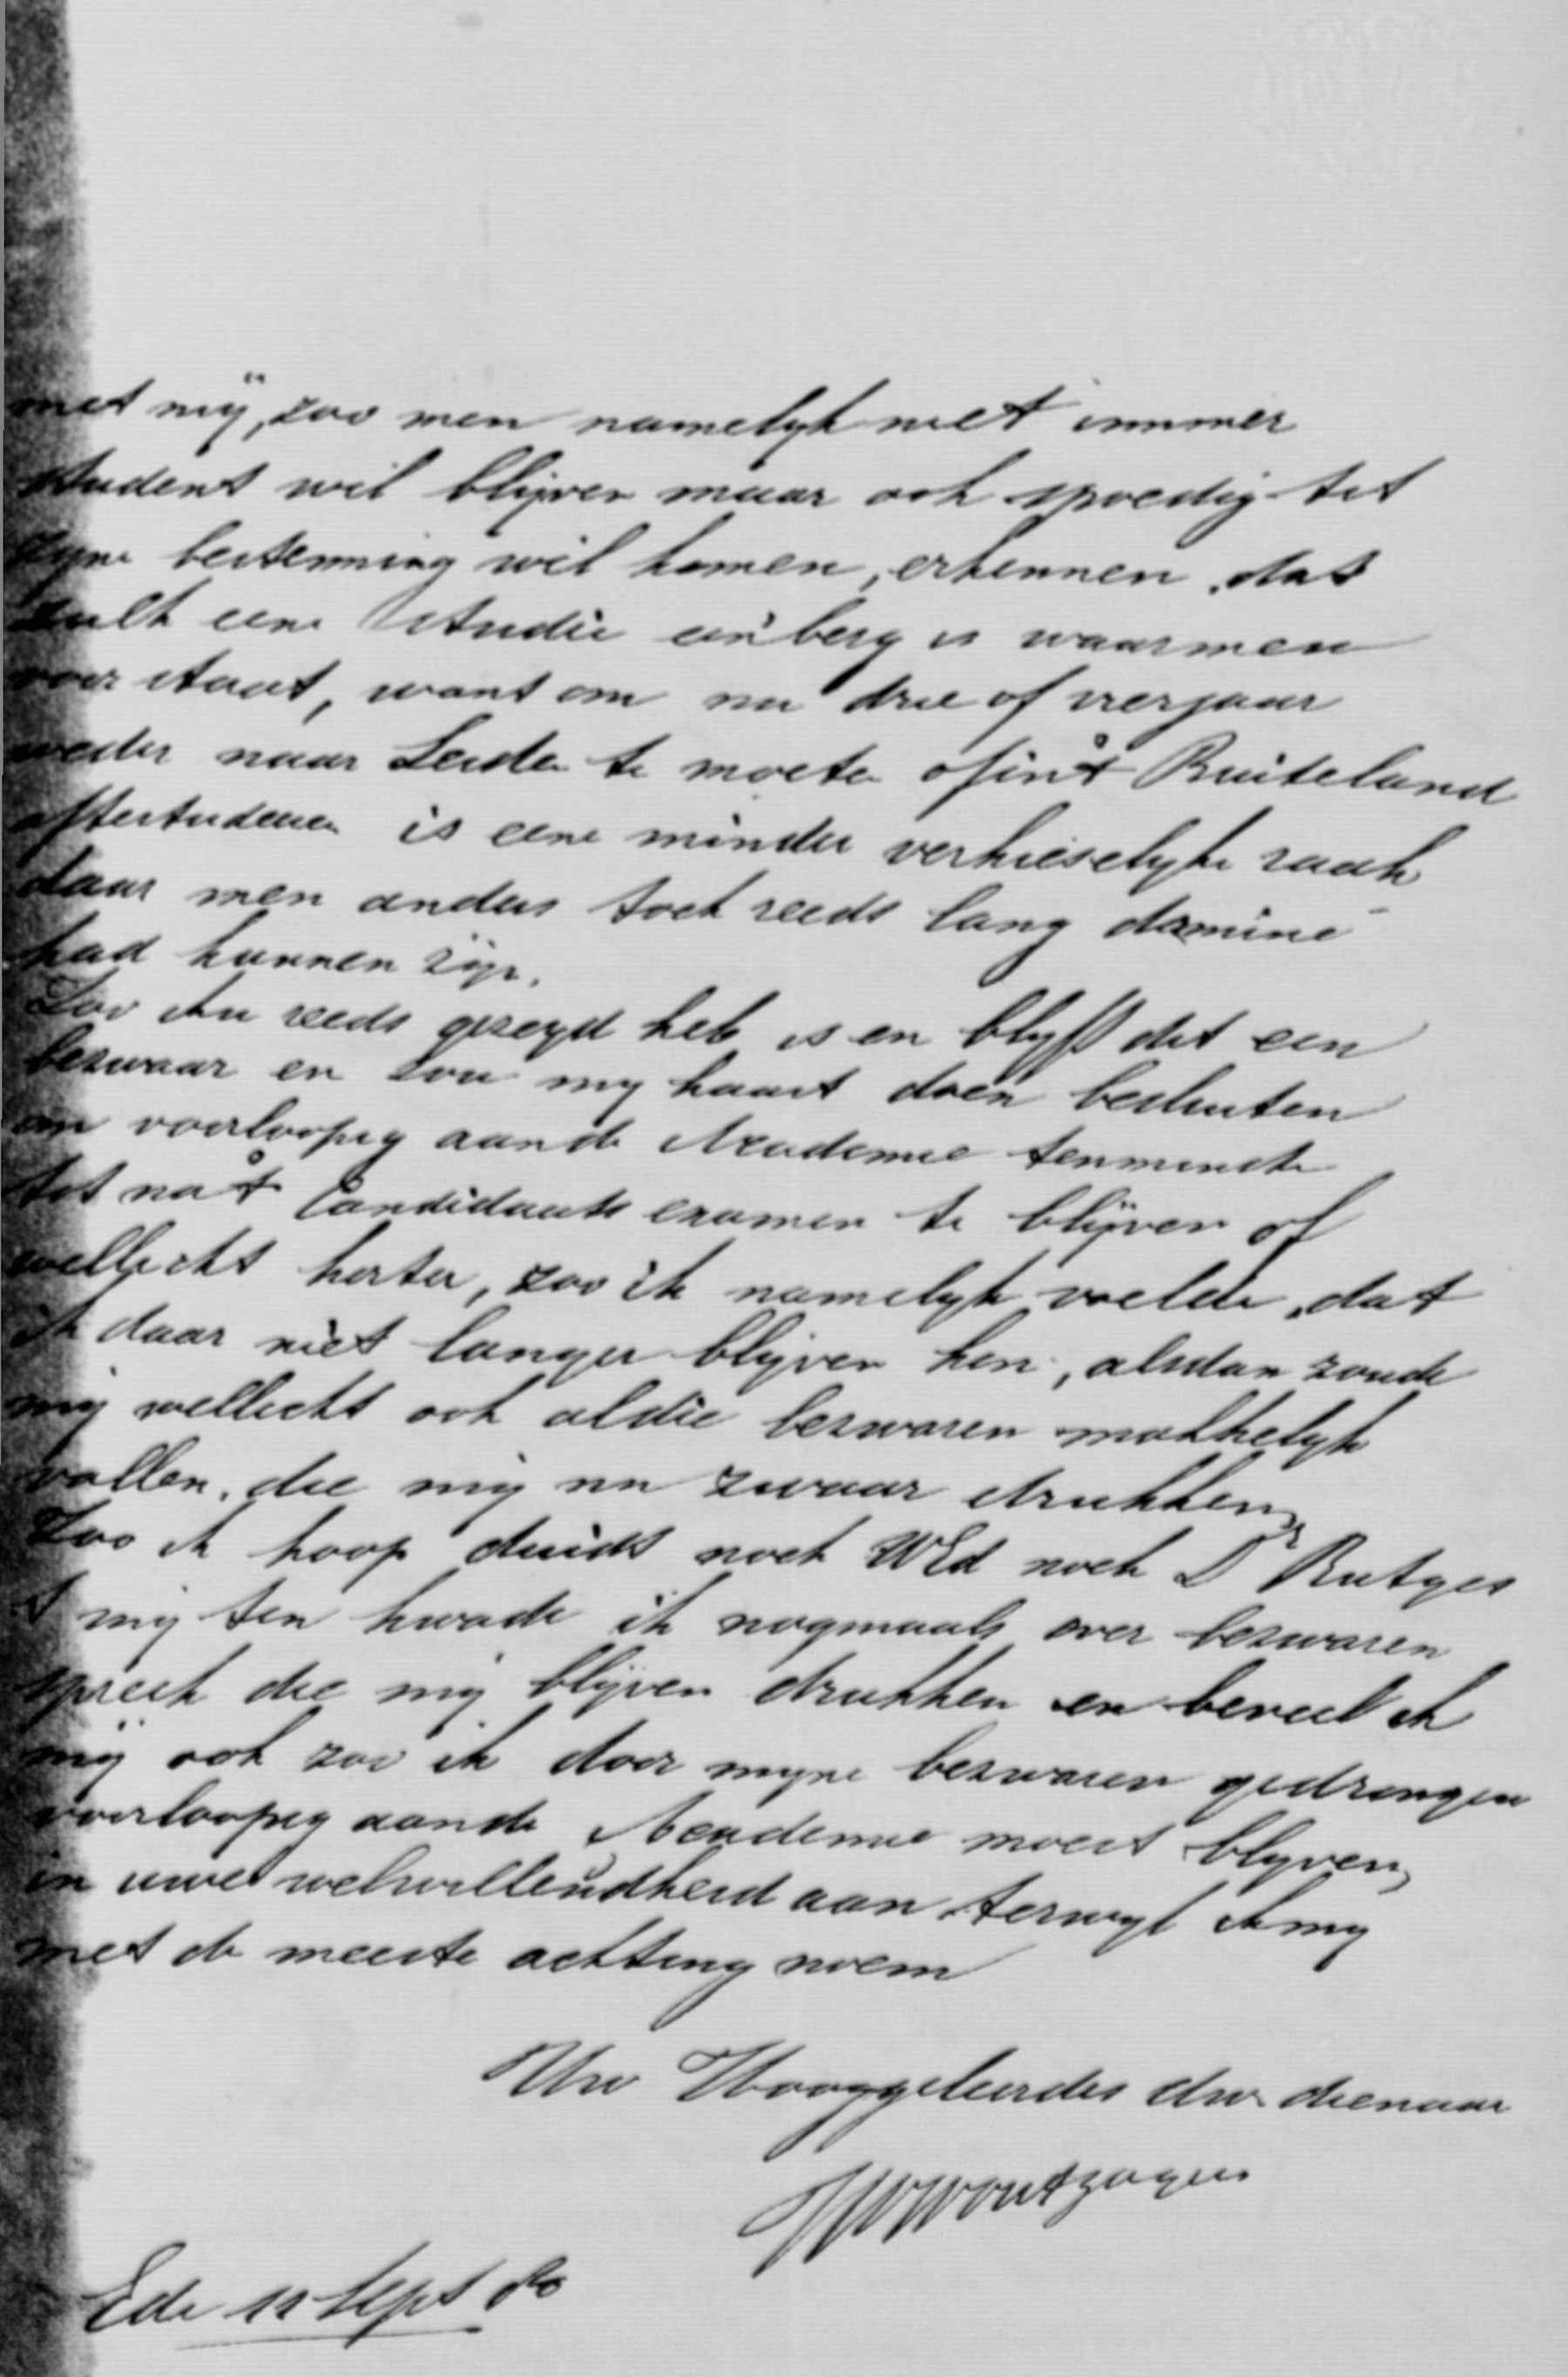 met mij, zoo men namelijk niet immer
student wil blijven maar ook spoedig tot
zijne bestemming wil komen, erkennen, dat
zulk eene Studie een berg is waarmen
voor staat, want om nu drie of vier jaar
weder naar Leiden te moeten of in 't Buiteland
 is eene minder verkieselijke zaak
daar men anders toch reeds lang dominé
had kunnen zijn.
Zoo ik u reeds gezegd heb is en blijft dit een
bezwaar en zou mij haast doen besluiten
om voorloopig aan de Academie tenminste
tot na 't Candidaats examen te blijven of
wellicht korter, zoo ik namelijk voelde, dat
ik daar niet langer blijven kon, alsdan zoude
mij wellicht ook al die bezwaren makkelijk
vallen, die mij nu zwaar drukken,
Zoo ik hoop duidt noch WEd noch Dr Rutgers
't mij ten kwade ik nogmaals over bezwaren
spreek die mij blijven drukken en beveel ik
mij ook zoo ik door mijne bezwaren gedrongen
voorloopig aan de Academie moest blijven,
in uwe welwillendheid aan terwijl ik mij
met de meeste achting noem
Uw Hooggeleerdes dw. dienaar
Houtzagers
Ede 11 Sept 80